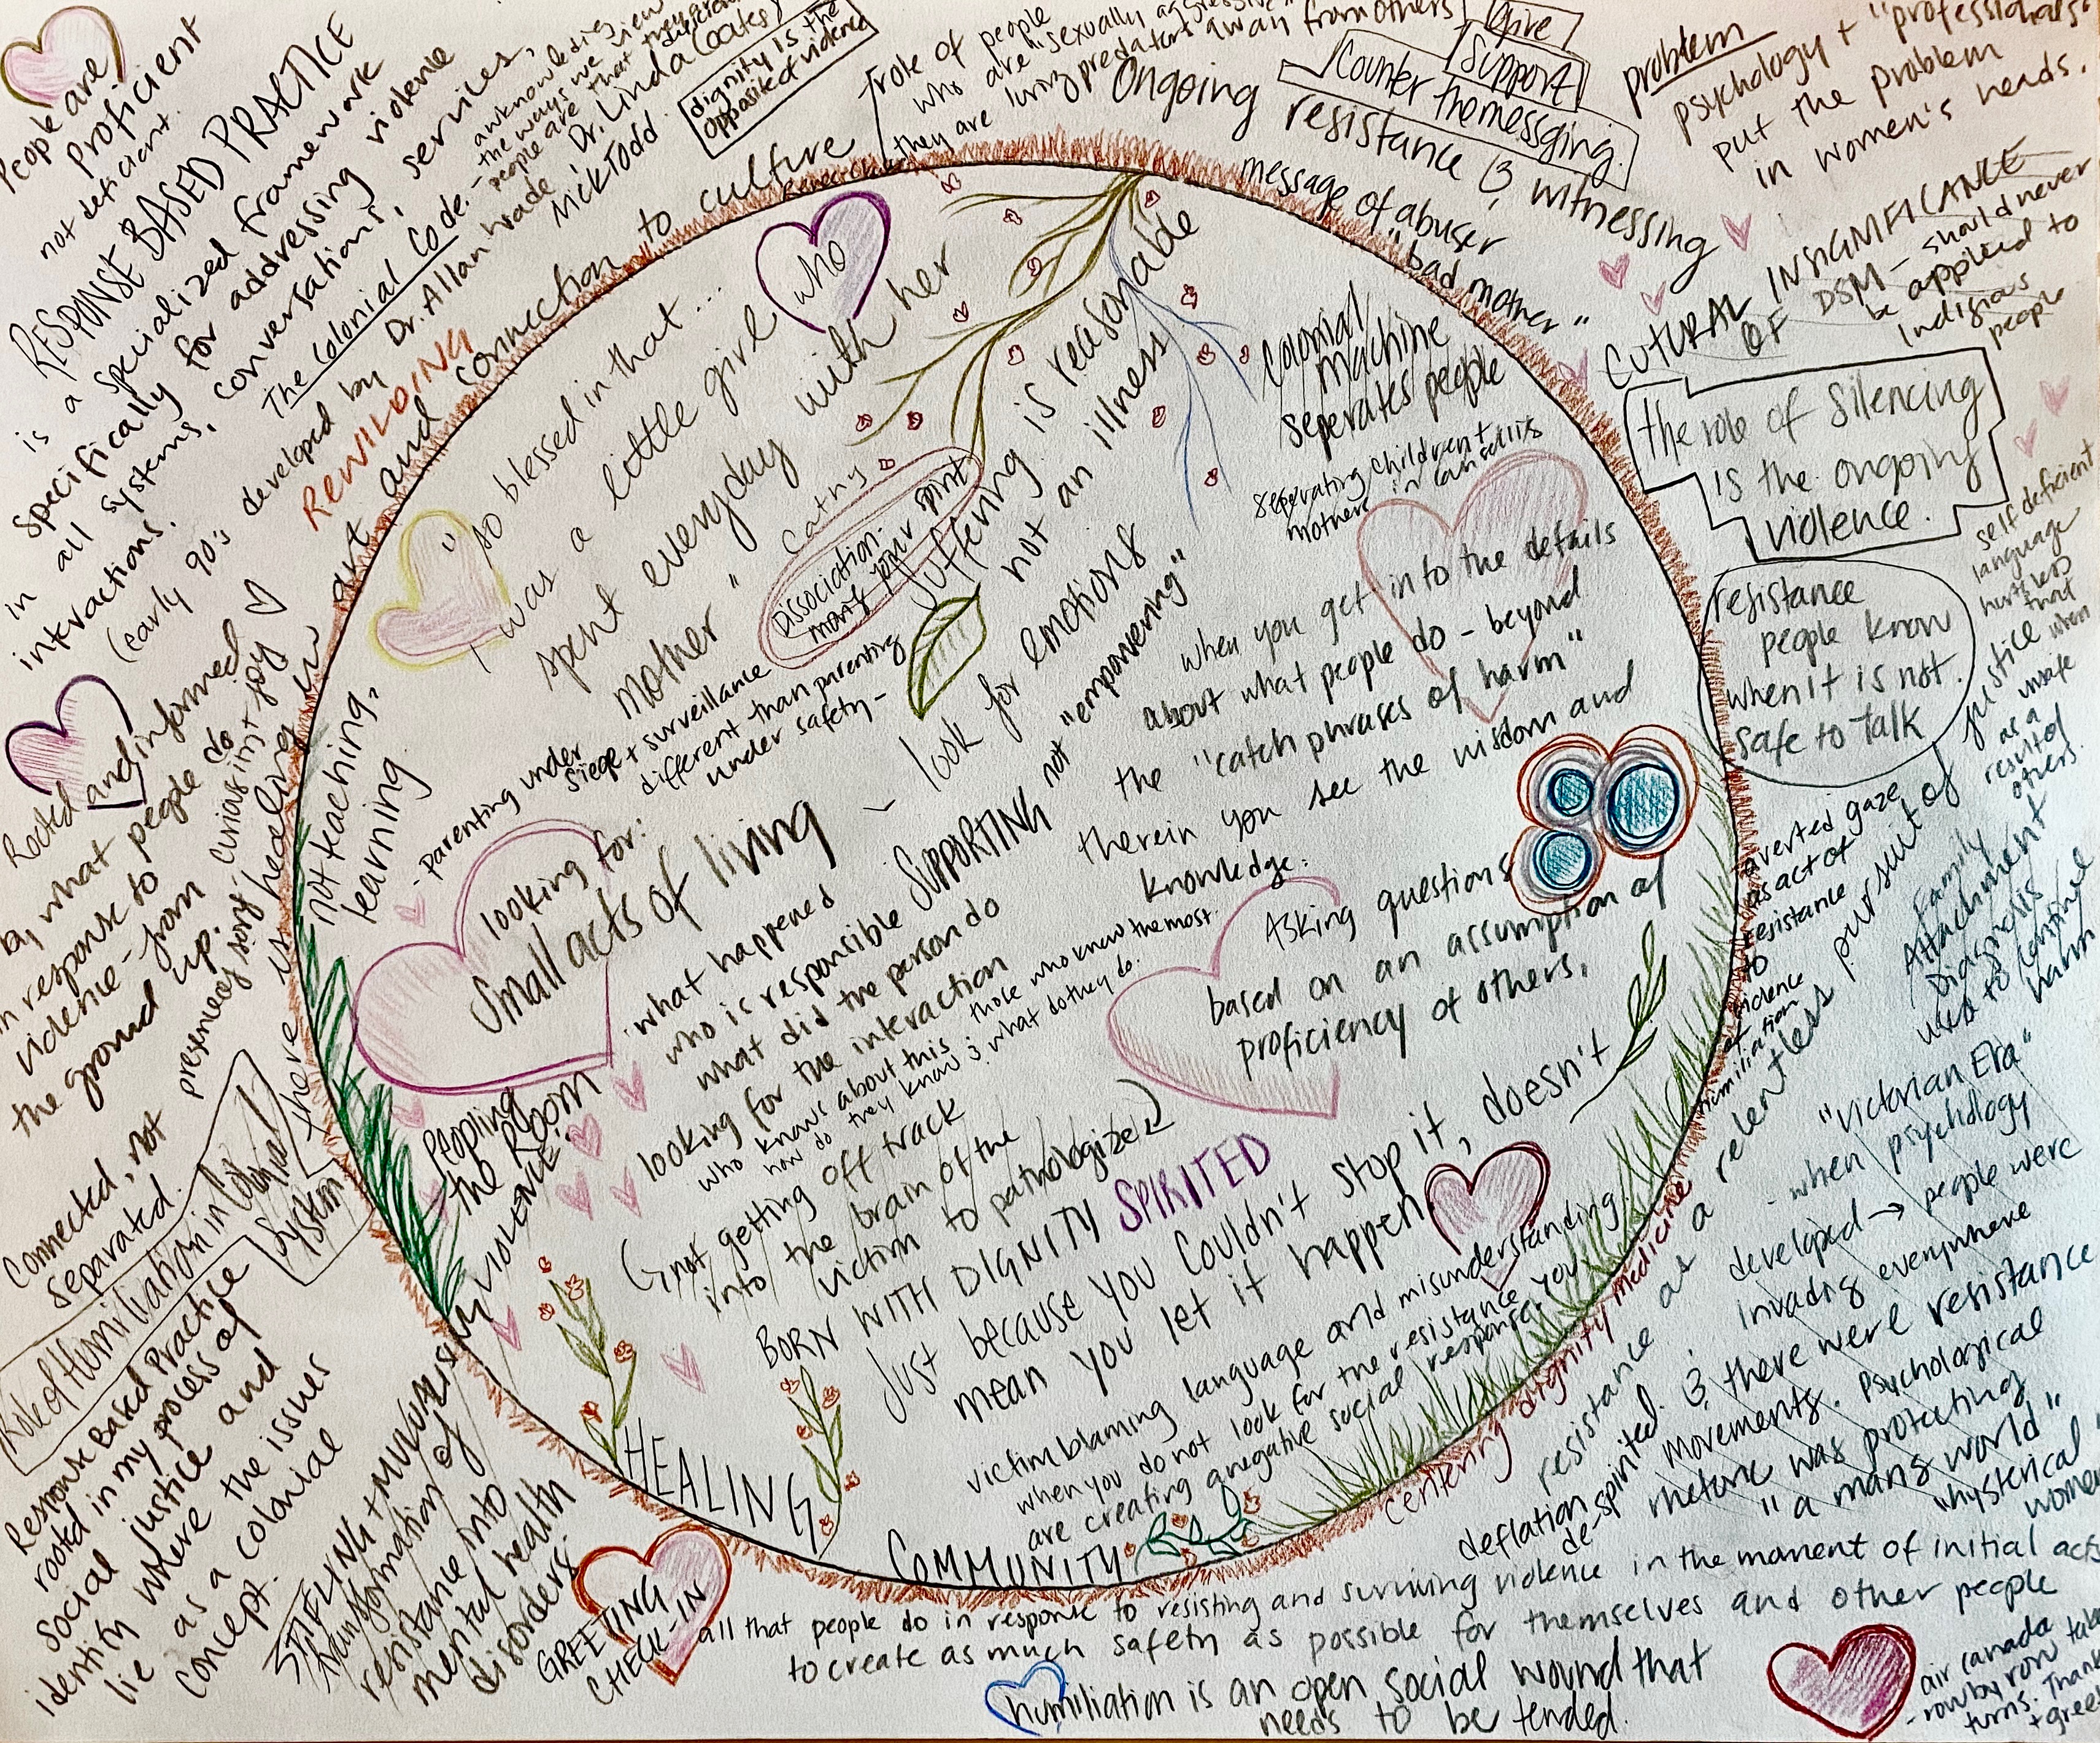 People are
proficient
not deficient.
RESPONSE BASED PRACTICE
is a specialized framework
specifically for addressing violence
in all systems, conversations, services,
interactions.
The Colonial Code.
awknowledging
the ways we view
people are that they are
(early 90's developed by Dr. Allan Wade, Dr. Linda Coates,
Nick Todd.
dignity is the
opposite of violence
REWILDING
art and connection to culture
role of people
who are "sexually aggressive"
they are luring predators away from others
Ongoing
resistance & witnessing
give
support
Counter the messging.
message of abuser
"bad mother"
problem
psychology + "professionals"
put the problem
in women's heads.
CUTURAL INSIGNIFICANCE
OF DSM - should never
be applied to
Indigious
people
the role of silencing
is the ongoing
violence.
resistance
people know
when it is not
safe to talk
self deficient
language
that
when
unsafe
as a
result of
others.
averted gaze
as act of
resistance
to
evidence
of
humiliation
Family
Attachment
Diagnosis
used to continue
harm
resistance as a relentless pursuit of justice
"Victorian Era"
- when psychology
developed → people were
invading everywhere
& there were resistance
movements. Psychological
rhetoric was protecting
"a mans world"
"hysterical
women
deflation
de-spirited.
centering dignity medicine
"so blessed in that...
I was a little girl who
spent everyday with her
mother"
Cathy
Dissociation-
many your spirit
suffering is reasonable
not an illness
Colonial
machine
seperates people
seperating children +
mothers in
- parenting under
siege + surveillance
different than parenting
under safety -
looking for:
small acts of living
- look for emotions
SUPPORTING not "empowering"
when you get into the details
about what people do - beyond
the "catch phrases of harm"
therein you see the wisdom and
knowledge.
Asking questions
based on an assumption of
proficiency of others.
· what happened
who is responsible
what did the person do
looking for the interaction
who knows about this
how do they know & what do they do.
those who know the most.
not getting off track
into the brain of the
victim to pathologize
BORN WITH DIGNITY SPIRITED
Just because you couldn't stop it, doesn't
mean you let it happen.
victim blaming language and misunderstanding.
when you do not look for the resistance you
are creating a negative social response.
not teaching,
learning.
there is healing in
Peopling
the Room
VIOLENCE
HEALING
COMMUNITY
Rooted and informed
by what people do
in response to
violence - from
the ground up.
Curiousity
joy
Connected, not
separated.
Role of Humiliation in Colonial
System
Response Based Practice
rooted in my process of
social justice and
identity where the issues
lie as a colonial
concept.
STIFLING +
transformation of
resistance into
mental health
disorders
GREETING
CHECK-IN
all that people do in response to resisting and surviving violence in the moment of initial acts
to create as much safety as possible for themselves and other people
humiliation is an open social wound that
needs to be tended.
air canada
- row by row
turns.